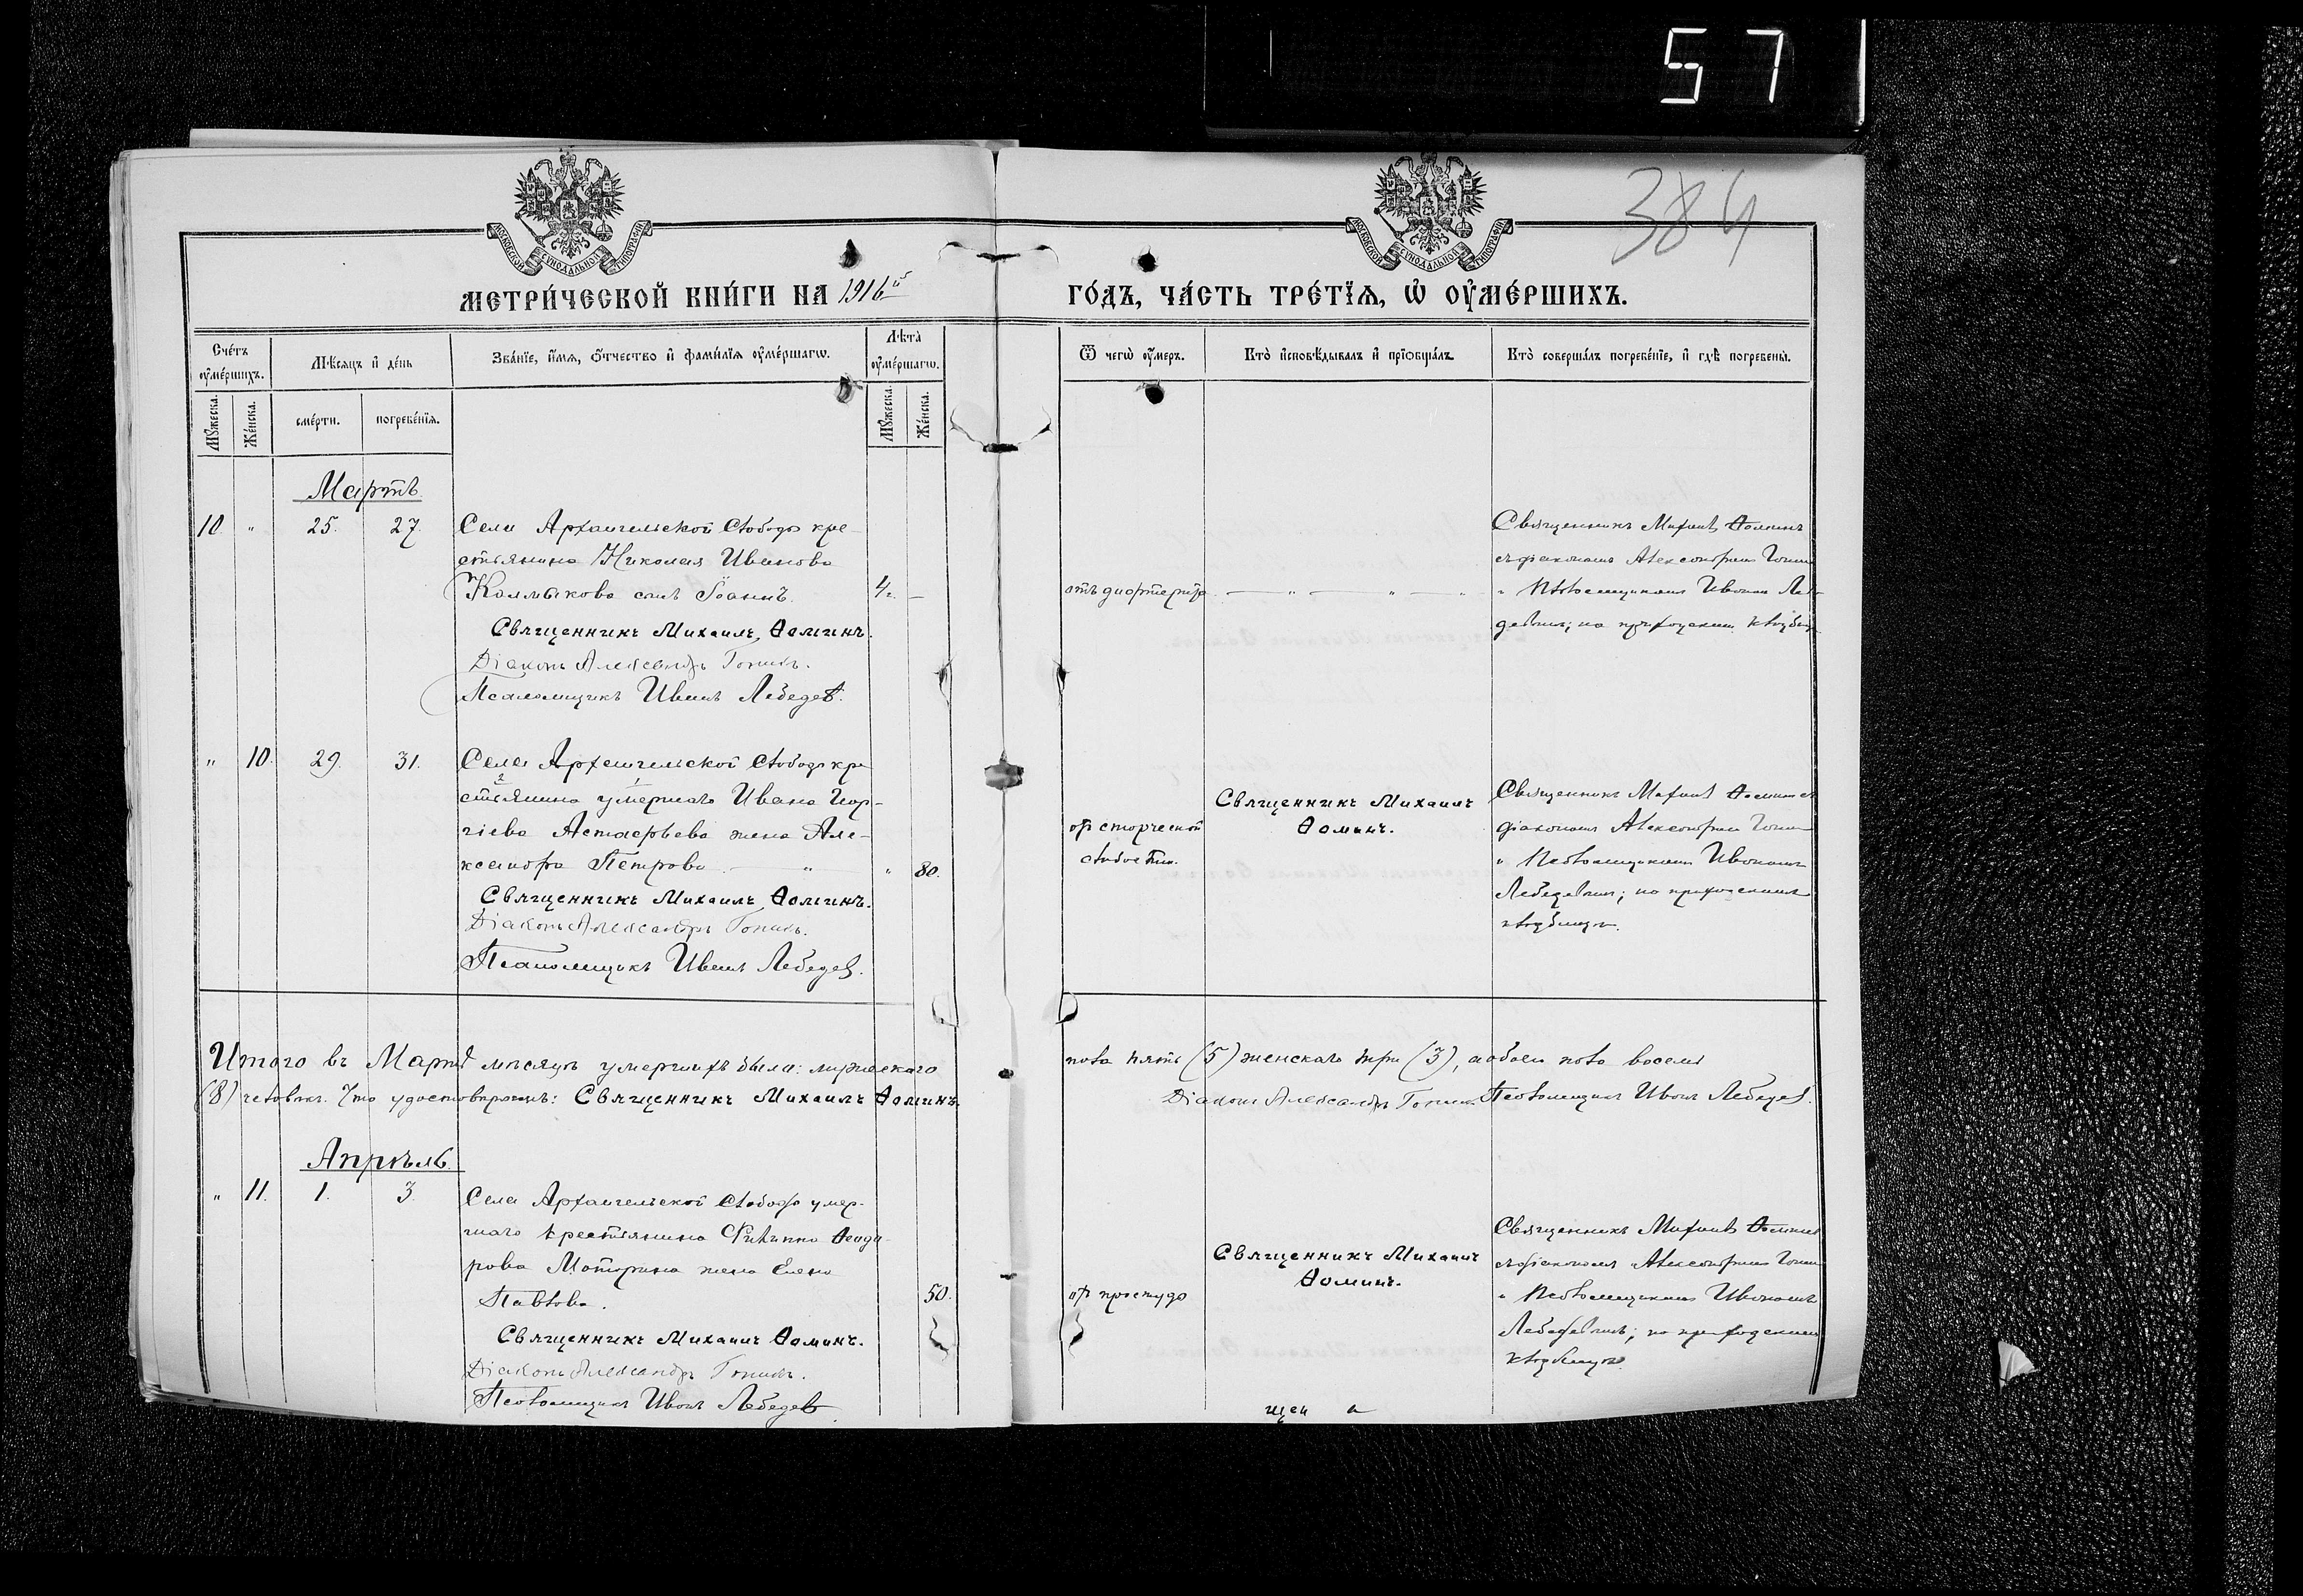 57
384
МОСКОВСКОЙ СѴНОДАЛЬНОЙ ТИПОГРАФІИ
МОСКОВСКОЙ СѴНОДАЛЬНОЙ ТИПОГРАФІИ
МЕТРИ́ЧЕСКОЙ КНИ́ГИ НА 1916й
ГО́ДЪ, ЧА́СТЬ ТРЕ́ТІѦ, Ѡ҆ ОУ҆МЕ́РШИХЪ.
Сче́тъ оу҆ме́ршихъ.
Мѣ́сѧцъ и҆ де́нь
Зва́нїе, и҆́мѧ, ѻ҆́тчество и҆ фами́лїѧ оу҆ме́ршагѡ.
Лѣ́та оу҆ме́ршагѡ.
Ѿ чегѡ̀ оу҆́меръ.
Кто̀ и҆сповѣ́дывалъ и҆ прїѻбща́лъ.
Кто̀ соверша́лъ погребе́нїе, и҆ гдѣ̀ погребены̀.
Мꙋ́жеска.
Же́нска.
сме́рти.
погребе́нїѧ.
Мꙋ́жеска.
Же́нска.
Мартъ
10. " 25. 27. Села Архангельской Слободы кре-
стьянина Николая Иванова
Калмыкова сынъ Іоаннъ. 4г. —
Священникъ Михаилъ Ѳоминъ.
Діаконъ Александръ
Псаломщикъ Иванъ Лебедев.
отъ дифтерита — " — " — "
Священникъ Михаилъ Ѳоминъ
съ діакономъ Александромъ
и Псаломщикомъ Иваномъ Ле-
бедевымъ; на приходскомъ кладбищѣ
" 10. 29. 31. Села Архангельской Слободы кре-
2 1
стьянина умершаго Ивана Геор-
гіева Астафьева жена Але-
ксандра Петрова. — " — " 80.
Священникъ Михаилъ Ѳоминъ.
Діаконъ Александръ
Псаломщикъ Иванъ Лебедев.
отъ старческой
слабости.
Священникъ Михаилъ
Ѳоминъ.
Священникъ Михаилъ Ѳоминъ съ
діакономъ Александромъ
и Псаломщикомъ Иваномъ
Лебедевымъ; на приходскомъ
кладбищѣ.
Итого въ Мартѣ мѣсяцѣ умершихъ было: мужескаго
пола пять (5) женскаго три (3), а обоего пола восемь
(8) человѣкъ. Что удостовѣряемъ: Священникъ Михаилъ Ѳоминъ.
Діаконъ Александръ Псаломщикъ Иванъ Лебедев.
Апрѣль
" 11. 1. 3. Села Архангельской Слободы умер-
шаго крестьянина Филиппа Ѳеодо-
рова Маторина жена Елена
Павлова. 50.
Священникъ Михаилъ Ѳоминъ.
Діаконъ Александръ
Псаломщикъ Иванъ Лебедев
отъ простуды
Священникъ Михаилъ
Ѳоминъ.
Священникъ Михаилъ Ѳоминъ
съ діакономъ Александромъ
и Псаломщикомъ Иваномъ
Лебедевымъ; на приходскомъ
кладбищѣ.
щен